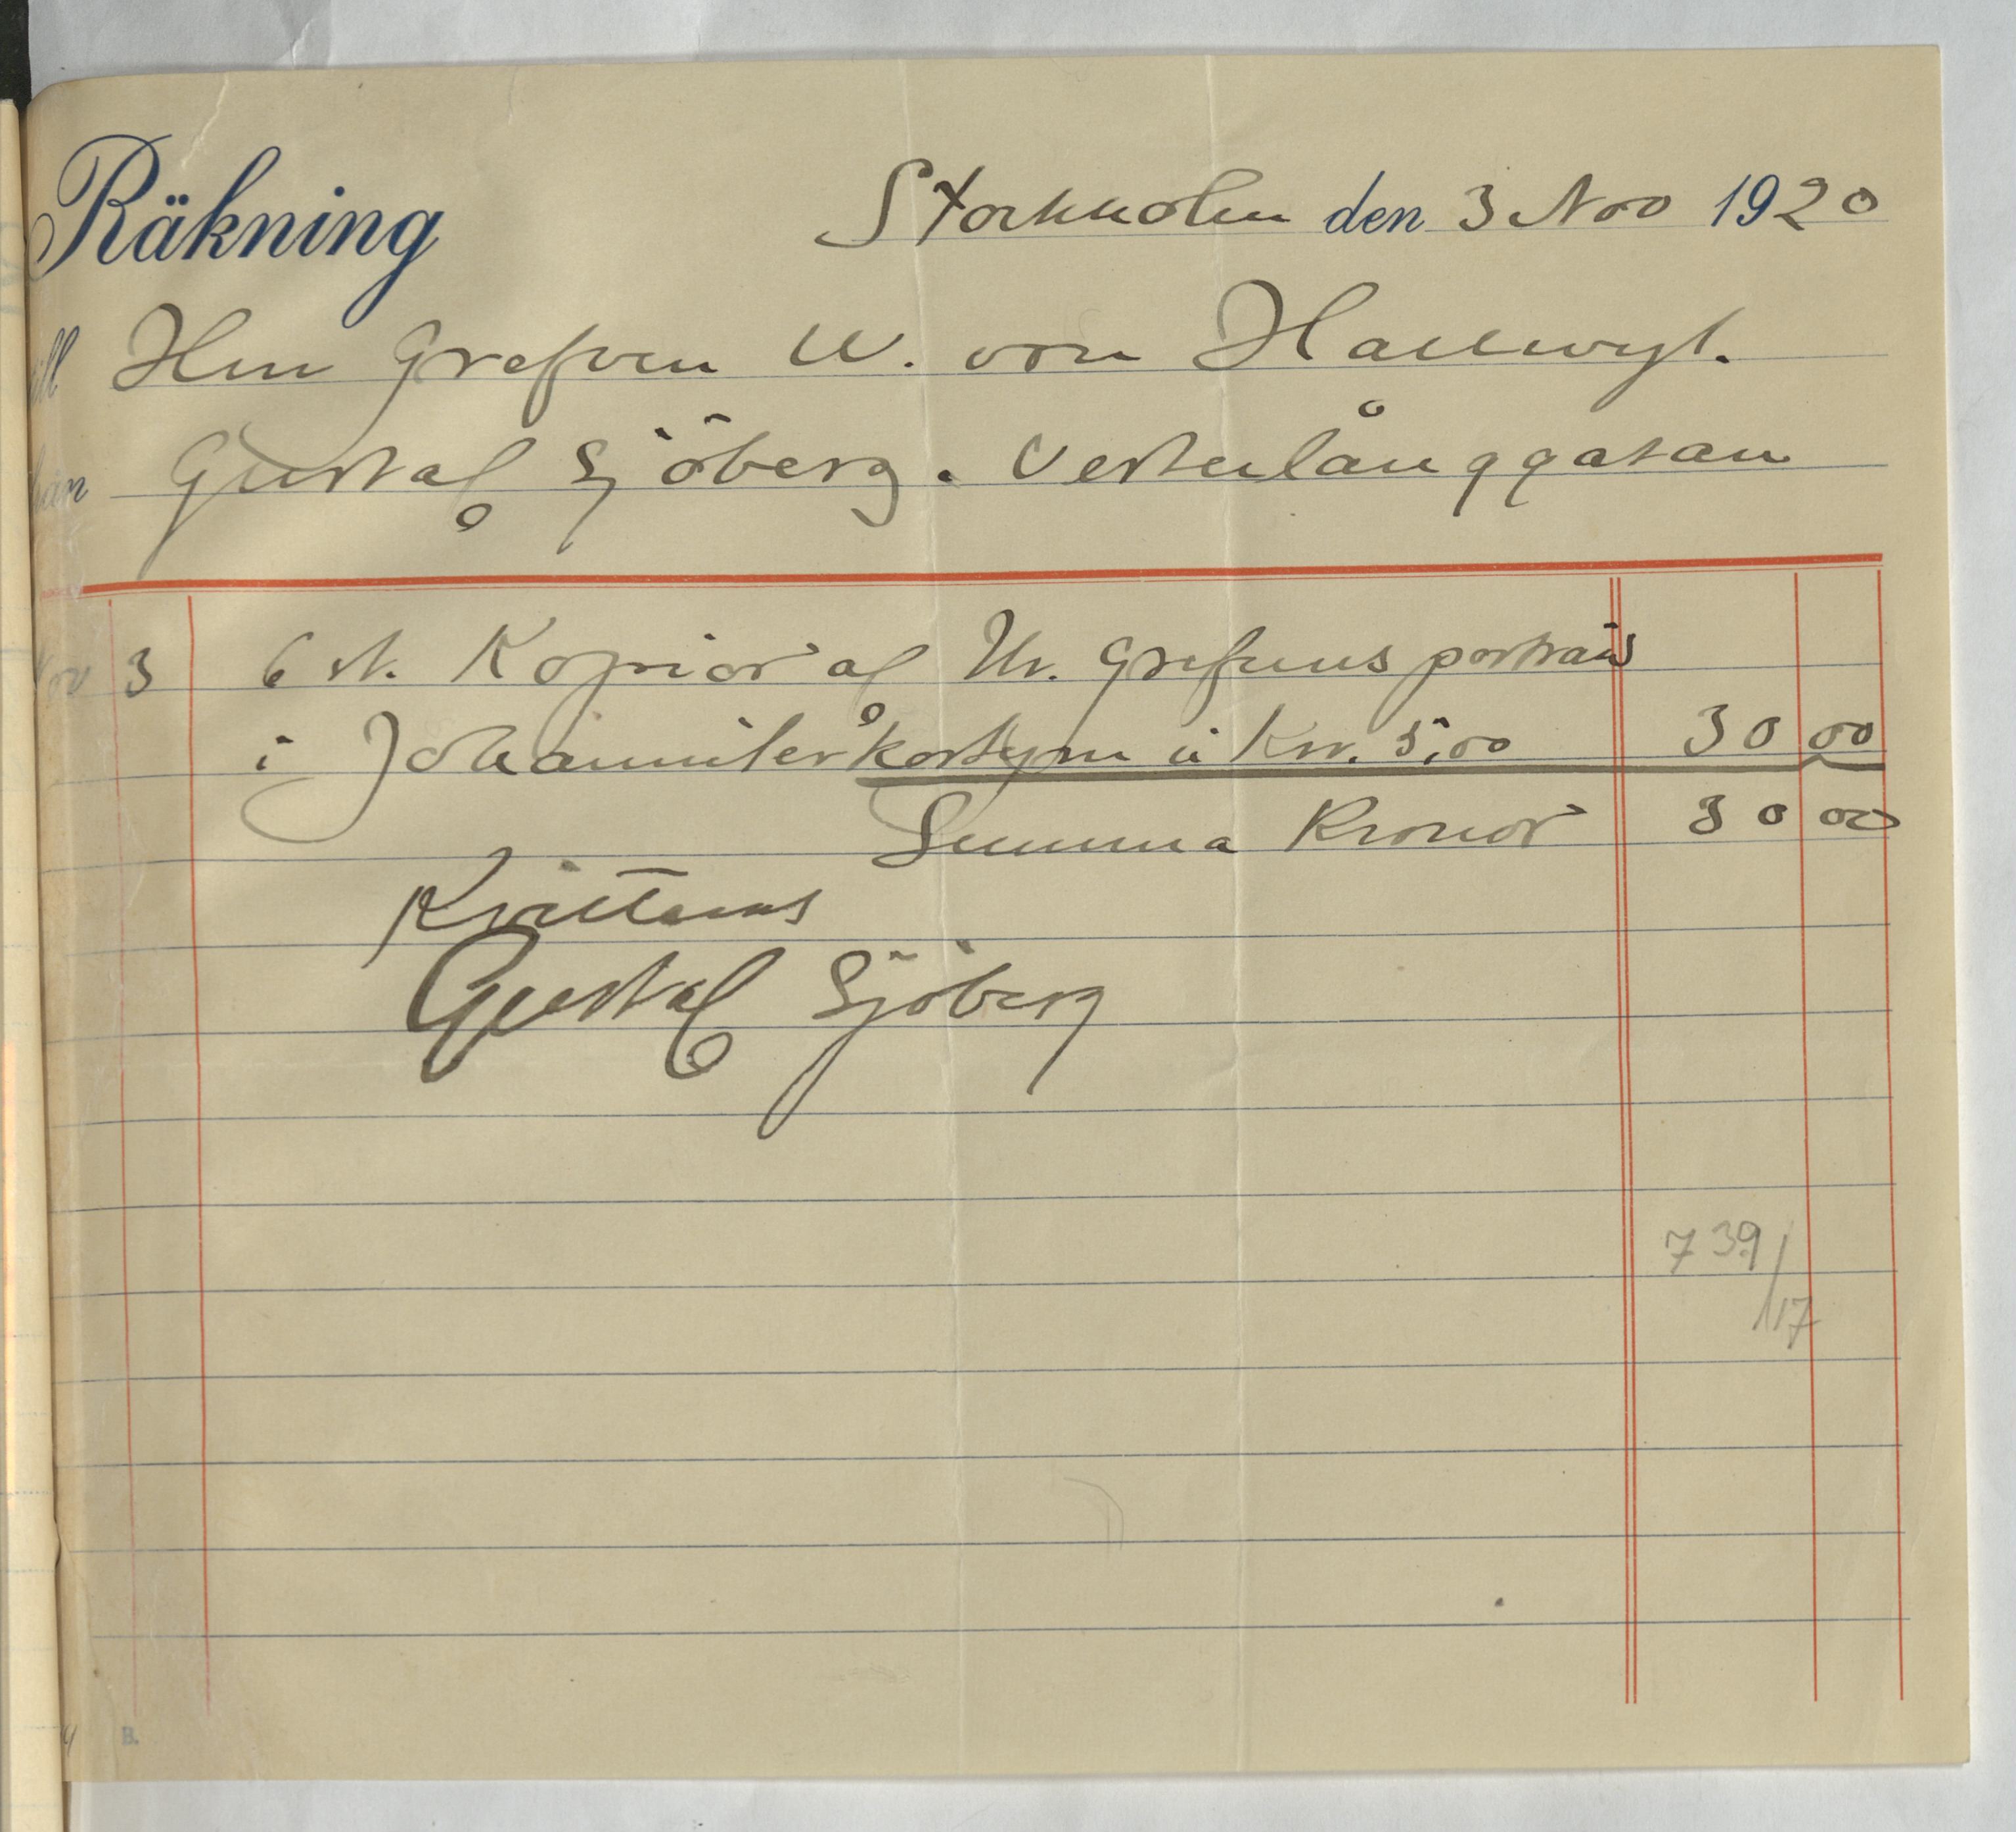 Räkning Stockholm den 3 Nov 1920
till Herr Grefven W. von Hallwyl.
från Gustaf Sjöberg. Vesterlånggatan
Nov 3 6 st. Kopior af Hr. Grefvens porträtt
i Johanniterkostym á Kr. 5,00 30 00
Summa Kronor 30 00
Kvitteras
Gustaf Sjöberg
739/17
B.